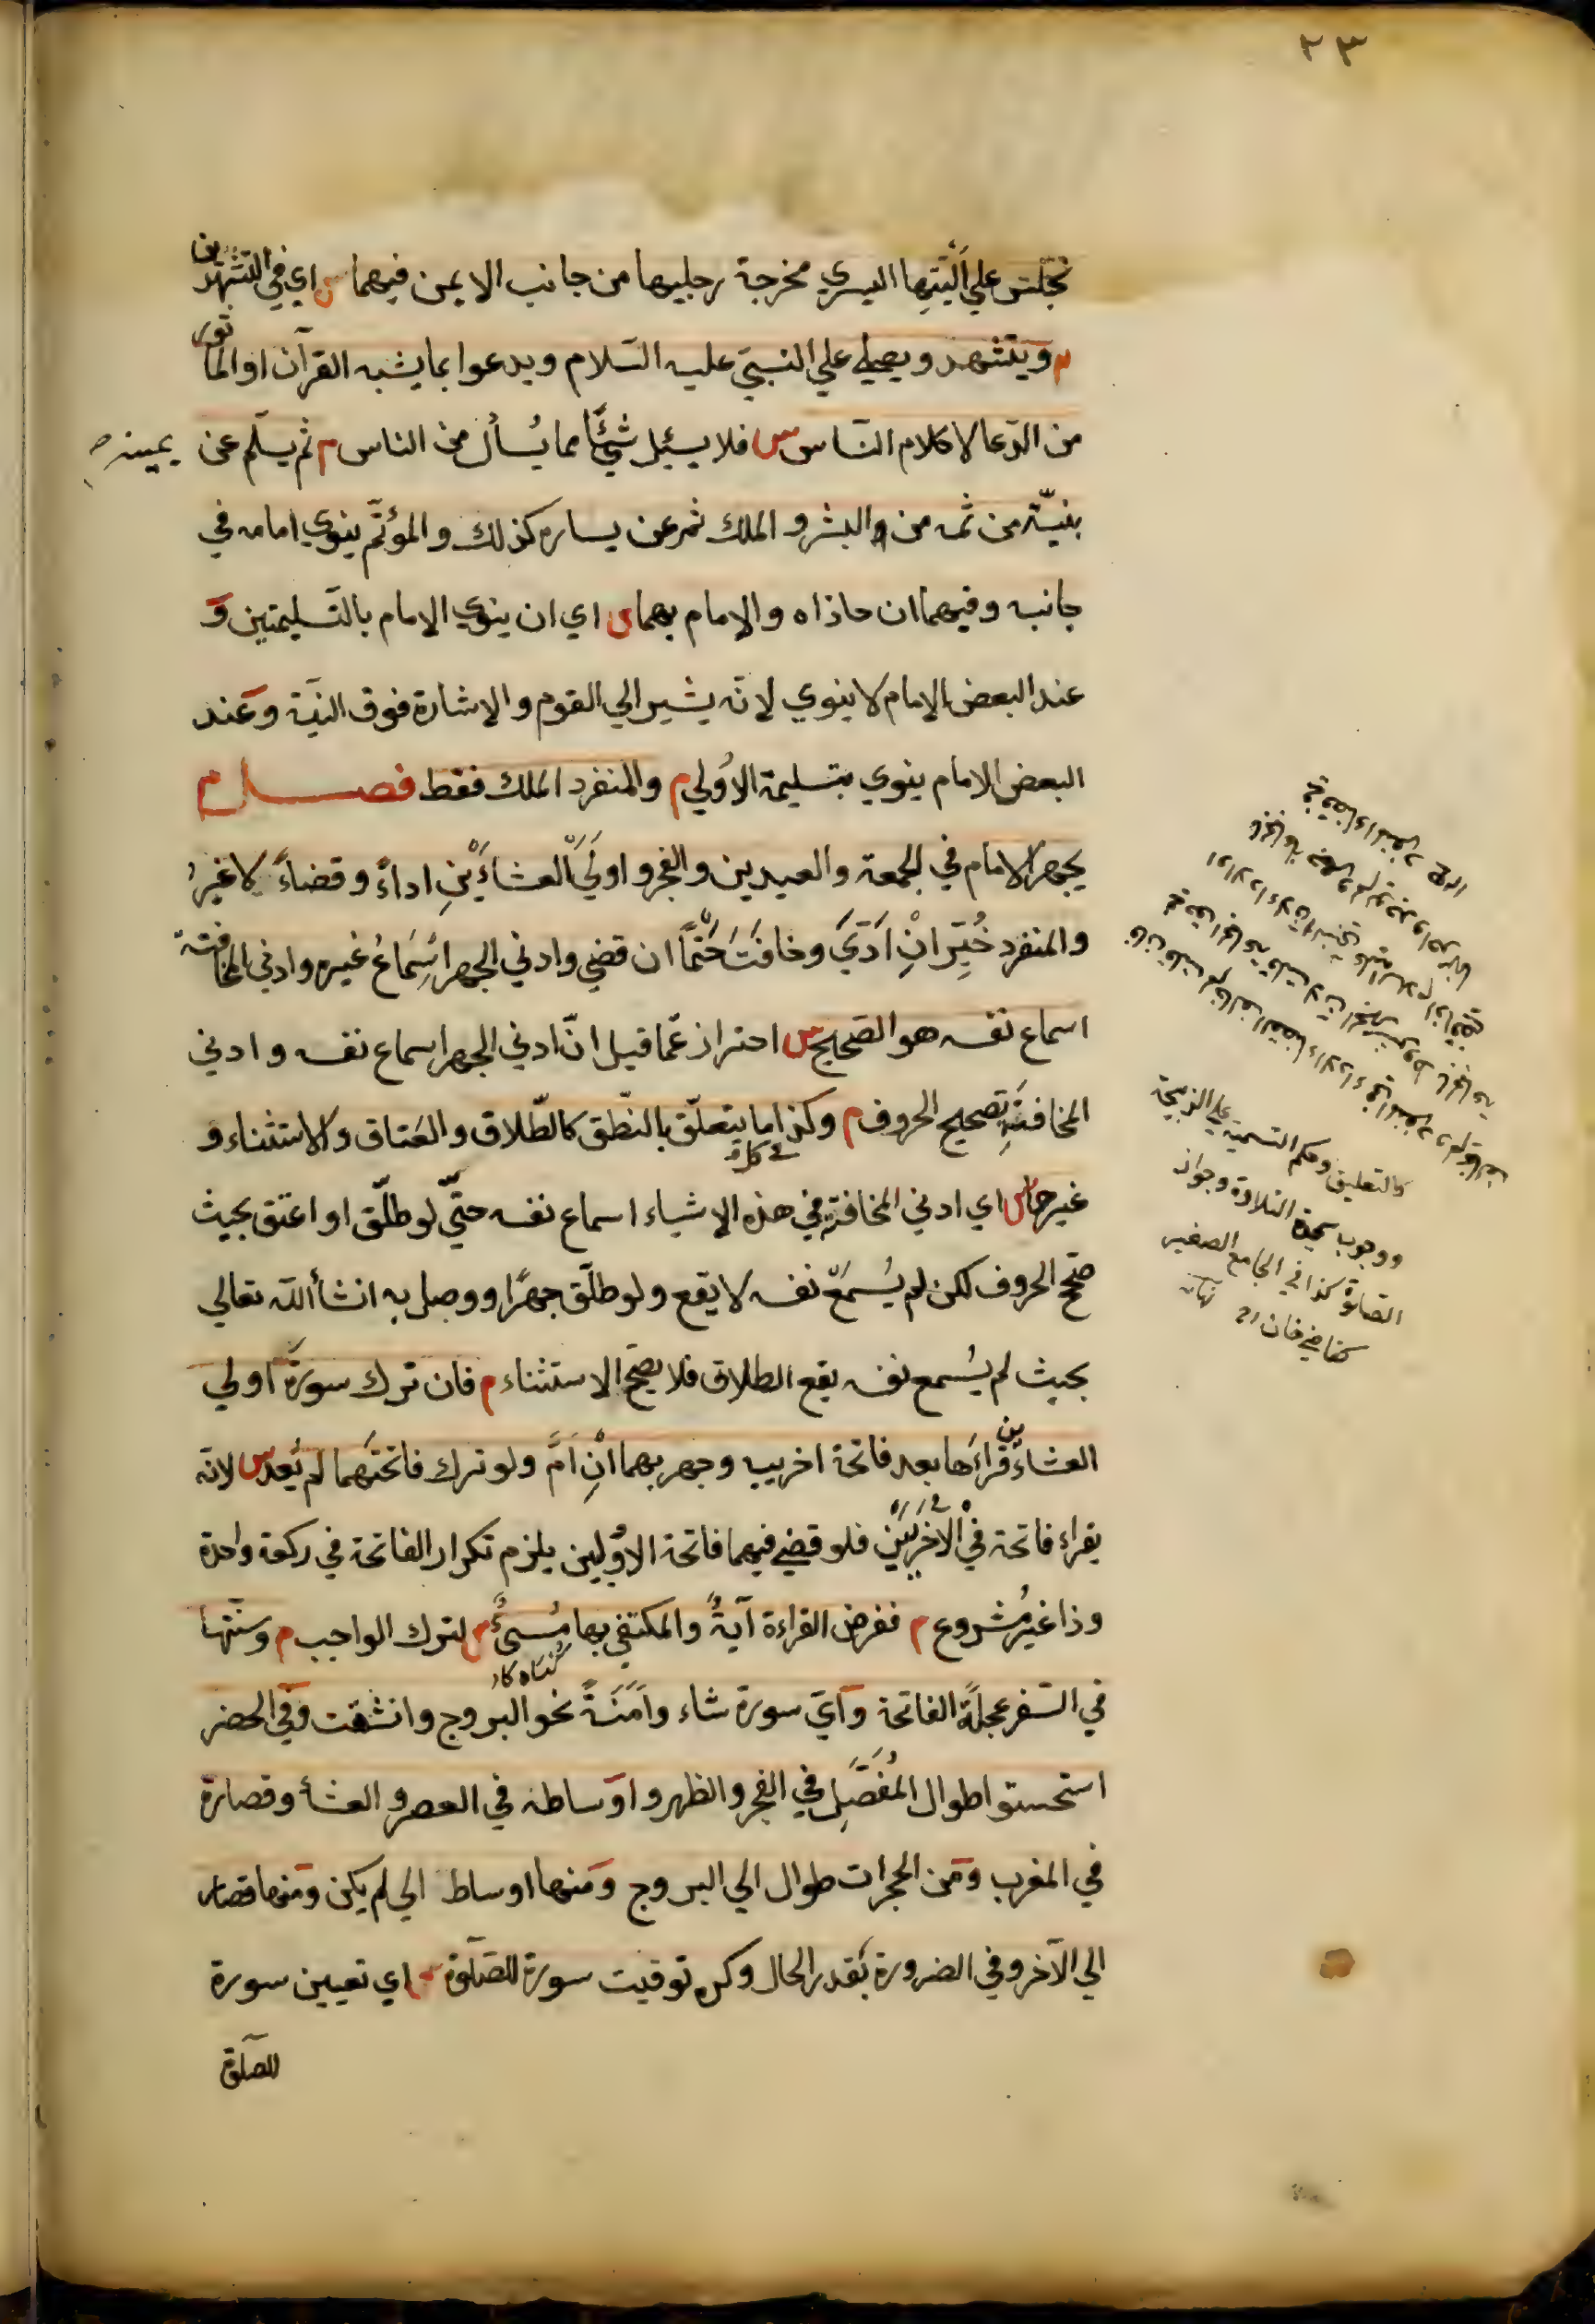 ٢٣
تجلس علي اَلْيَتِها اليسري مخرجة رجليها من جانب الايمن فيهما س اي في التشهّدين
م ويتشهد ويصلي علي النبيّ عليه السّلام ويدعوا بما يشبه القرآن او المأثور
من الدّعا لا كلام النّاس س فلا يسئل شيئًا مما يُسأل من الناس م ثم يسلّم عن يمينه
بنيّة من ثمه من البشر و الملك ثم عن يساره كذلك و المؤتمّ ينوي امامه في
جانبه وفيهما ان حاذاه والامام بهما س اي ان ينوي الامام بالتّسليمتين وَ
عند البعض الامام لا ينوي لانّه يشير الي القوم و الاشارة فوق النيّة وعند
البعض الامام ينوي بتسليمة الاُولي م والمنفرد الملك فقط فصل م
يجهر الامام في الجمعة والعيدين و الفجر و اولَيَ الْعشائَيْنِ اداءً وقضاءً لا غيرُ
والمنفرد خُيِّرَ انْ اَدّيَ وخافَتَ حَتْمًا ان قضي وادني الجهر اِسْمَاعُ غيره وادني المخافتة
اسماع نفسه هو الصّحيح س احتراز عمّا قيل انّ ادني الجهر اسماع نفسه و ادني
المخافتَةِ تصحيح الحروف م وكذا ما يتعلّق بالنّطق كالطّلاق والعَتاق و الاستثناء و
غيرها س اي ادني المخافتة في هذه الاشياء اسماع نفسه حتّي لو طلّق او اعتق بحيث
صحّح الحروف لكن لم يُسْمِعْ نفسه لا يقع ولو طلّق جهرًا و وصل به انشأ اللّه تعالي
بحيث لم يُسمع نفسه يقع الطلاق فلا يصحّ الاستثناء م فان ترك سورةَ اولي
العشائين قراءَها بعد فاتحة اخرييه وجهر بهما انِ اَمَّ ولو ترك فاتحتَهما لم يُعد س لانّه
يقراء فاتحة في الاُخريَيْنِ فلو قضي فيهما فاتحة الاُوليين يلزم تكرار الفاتحة في ركعة واحدة
وذا غيرُ مشروع م ففرض القراءة آيةٌ والمكتفي بها مُسِيءٌ س لترك الواجب م وسنّتها
كناه كار
في السّفر عجلةً الفاتحة وَايّ سورة شاء واَمَنَةً نحو البروج وانشقت وفي الحضر
استحسنوا طوال المُفَصَّلِ في الفجر و الظهر و اوساطه في العصر و العشأ وقصاره
في المغرب ومن الحجرات طوال الي البروج ومنها اوساط الي لم يكن ومنها قصار
الي الآخر وفي الضرورة بقدر الحال وكره توقيت سورة للصّلوة س اي تعيين سورة
للصلوة
كالتعليق وحكم التسمية علي الذبيحة
ووجوب سجدة التلاوة وجواز
الصلوة كذا في الجامع الصغير